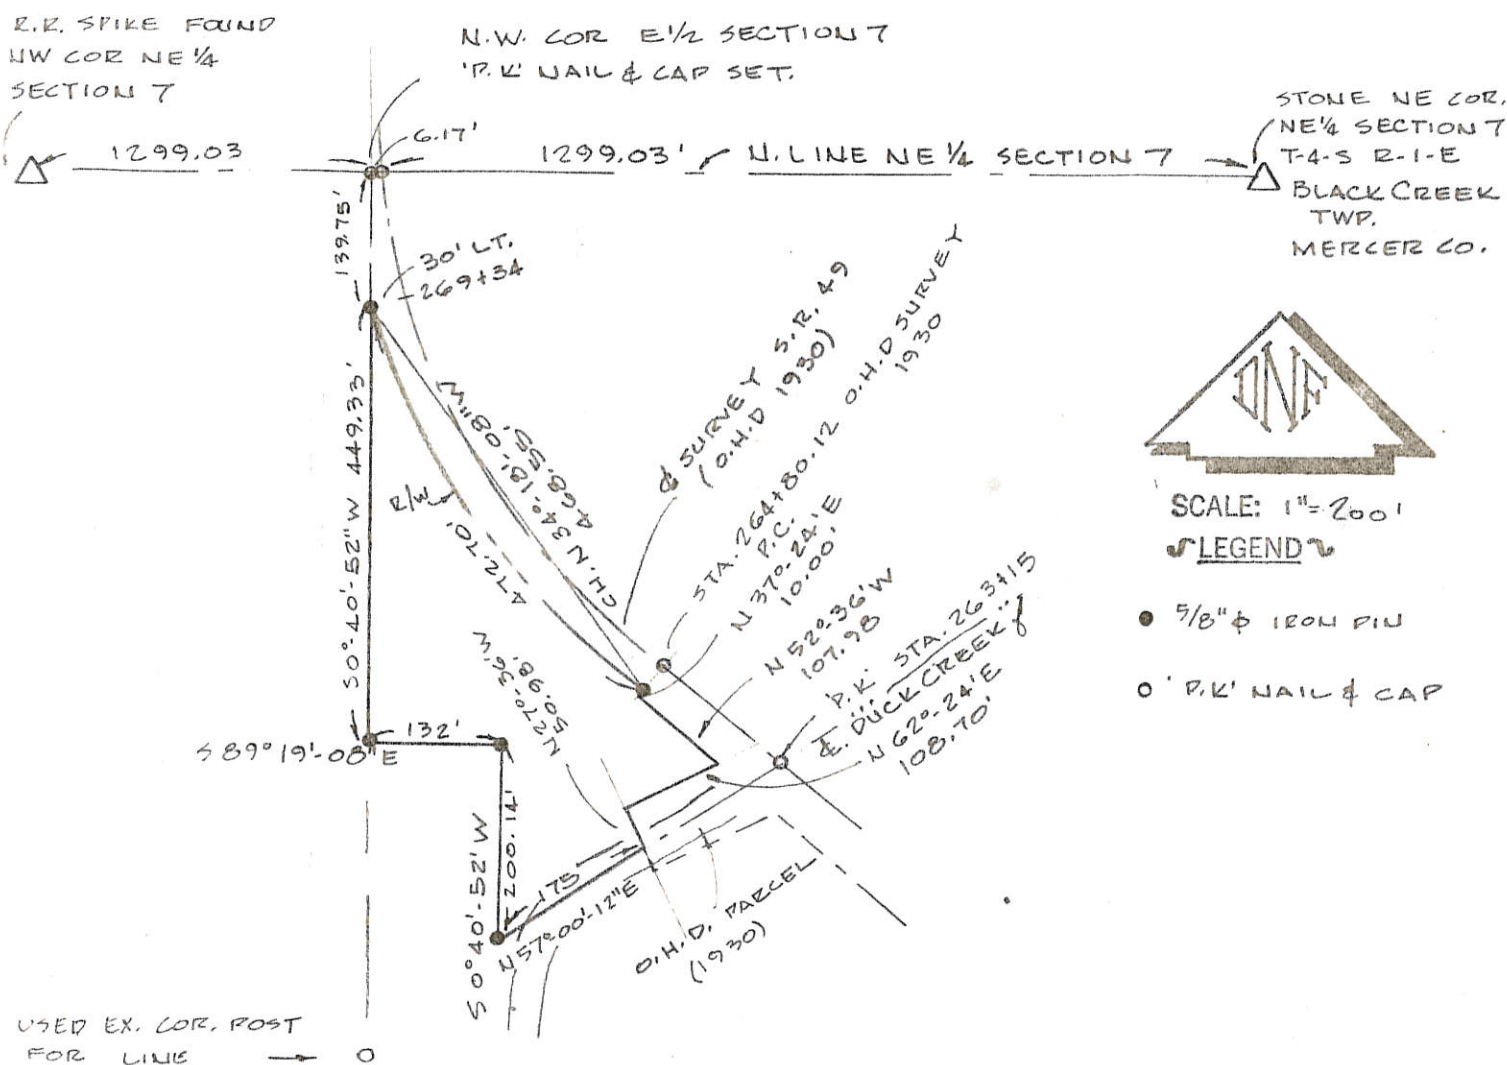 R.R. SPIKE FOUND
NW COR NE 1/4
SECTION 7
N.W. COR E 1/2 SECTION 7
'P.K' NAIL & CAP SET.
STONE NE COR.
NE 1/4 SECTION 7
T-4-S R-1-E
BLACK CREEK
TWP.
MERCER CO.
1299.03
6.17'
1299.03'
N. LINE NE 1/4 SECTION 7
139.75'
30' LT.
269+34
S 0°-40'-52" W 449.33'
R/W
472.70'
CH. N 34°-18'-08" W
468.55'
℄ SURVEY S.R. 49
(O.H.D 1930)
STA. 264+80.12 O.H.D SURVEY
P.C. 1930
N 37°-24' E
10.00'
N 52°-36' W
107.98
'P.K.' STA. 263+15
℄. DUCK CREEK
N 62°-24' E
108.70'
N 27°-36' W
50.98'
132'
S 89° 19'-08" E
S 0° 40'-52' W
200.14'
175
N 57°-00'-12" E
O.H.D. PARCEL
(1930)
USED EX. COR. POST
FOR LINE
DNF
SCALE: 1"= 200'
LEGEND
5/8" ϕ IRON PIN
'P.K' NAIL & CAP